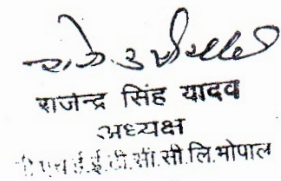 राजेन्द्र सिंह यादव
अध्यक्ष
ई.ई.टी.सी.सी.लि.भोपाल